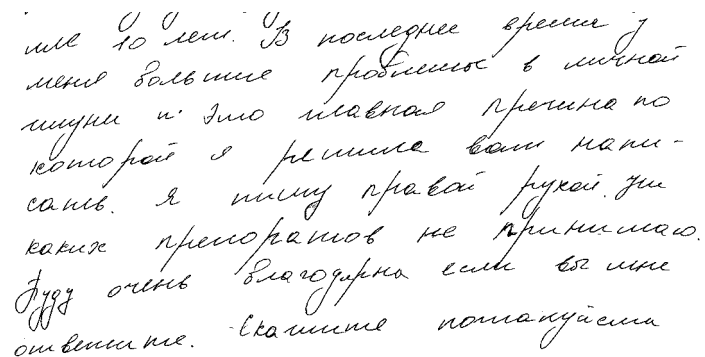 мле 10 лет. В последнее время у
меня большие проблемы в личной
жизни и это главная причина по
которой я решила вам напи-
сать. Я пишу правой рукой.
каких препоратов не принимаю.
Буду очень благодарна если вы мне
ответите. Скажите пожалуйста